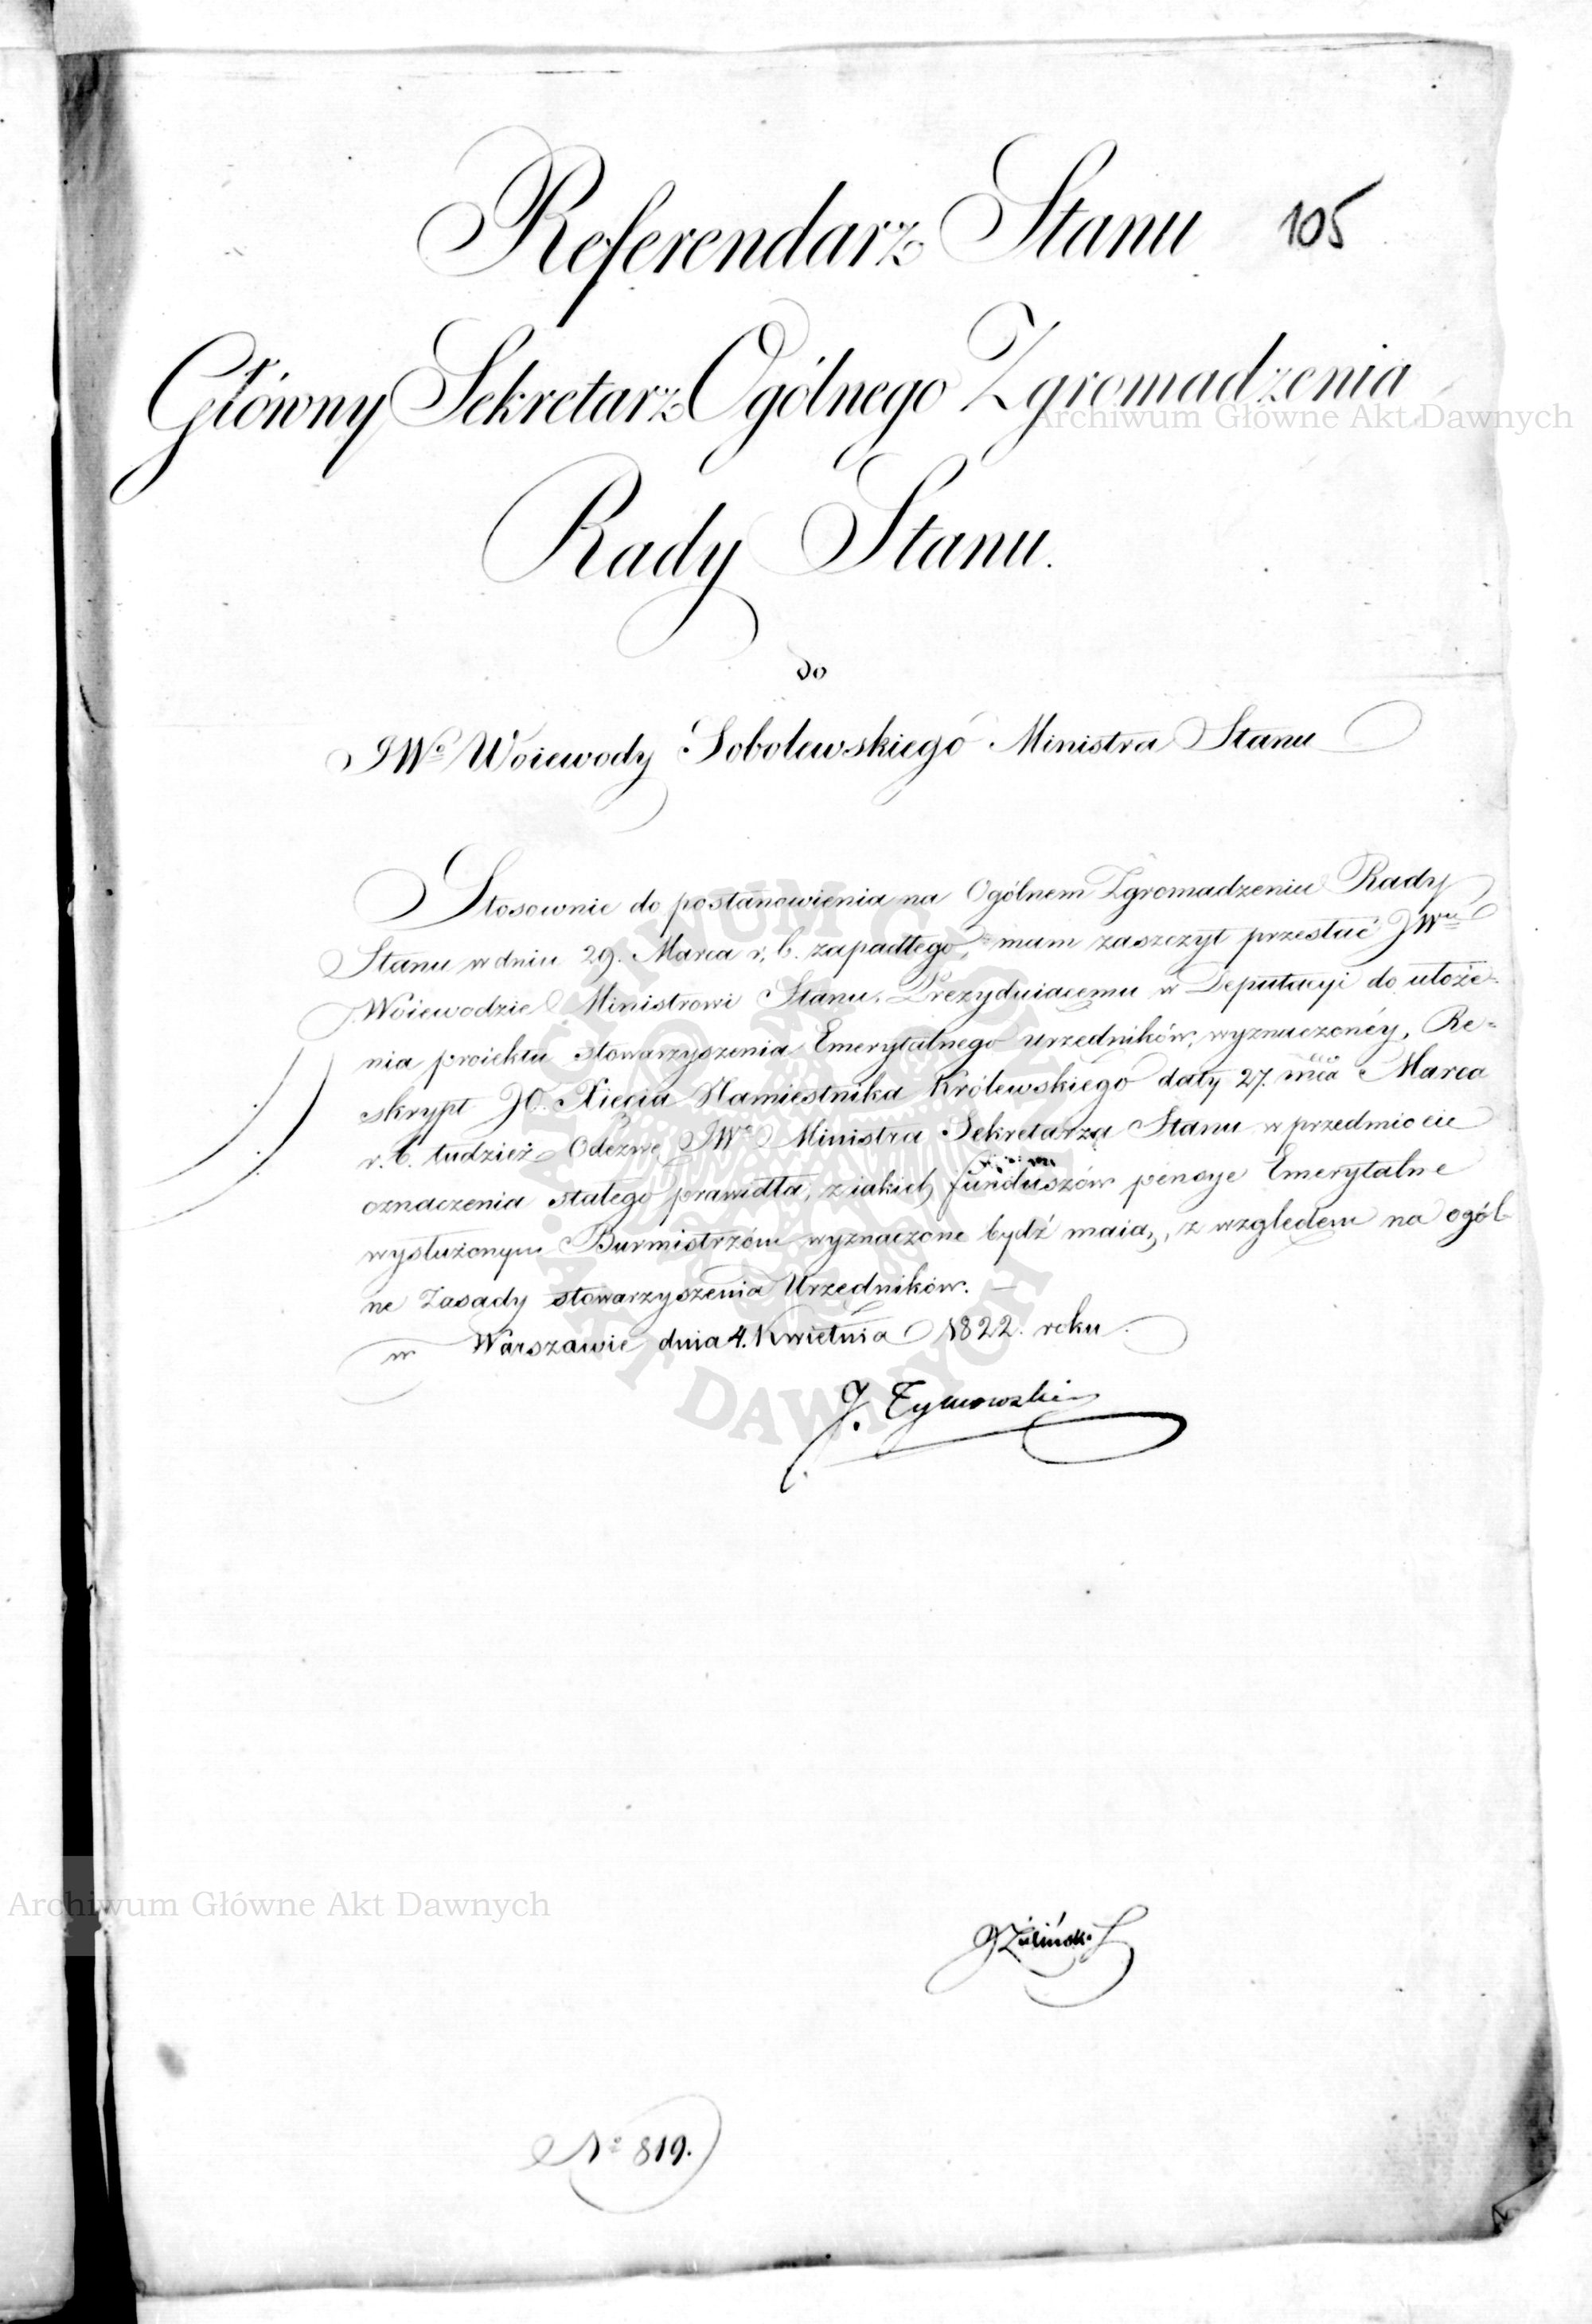 105
Referendarz Stanu
Główny Sekretarz Ogólnego Zgromadzenia
Archiwum Główne Akt Dawnych
Rady Stanu.
do
JWº Woiewody Sobolewskiego Ministra Stanu
Stosownie do postanowienia na Ogólnem Zgromadzeniu Rady
Stanu w dniu 29. Marca r. b. zapadłego, mam zaszczyt przesłać JWu
Woiewodzie Ministrowi Stanu, Prezyduiącemu w Deputacyi do ułoże=
nia proiektu stowarzyszenia Emerytalnego urzędników, wyznaczonéy, Re=
skrypt JO. Xięcia Namiestnika Królewskiego daty 27. mca Marca
r. b. tudzież Odezwę JWº Ministra Sekretarza Stanu w przedmiocie
oznaczenia stałego prawidła, z iakich funduszów pensye Emerytalne
wysłużonym Burmistrzóm wyznaczone bydź maią, z względem na ogól=
ne Zasady stowarzyszenia Urzędników. —
w Warszawie dnia 4. Kwietnia 1822. roku.
J. Tymowski
ARCHIWUM GŁÓWNE AKT DAWNYCH
Archiwum Główne Akt Dawnych
Nº 819.